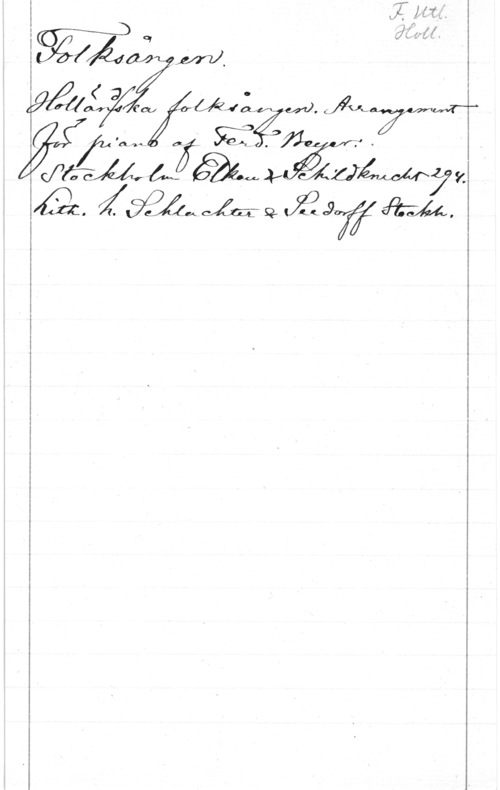 F. Utl.
Holl.
Folksången.
Holländska folksången. Arrangement
för piano af Ferd. Beyer.
Stockholm Elkan & Schildknecht 294.
Lith. h. Schlachter & Seedorff Stockh.